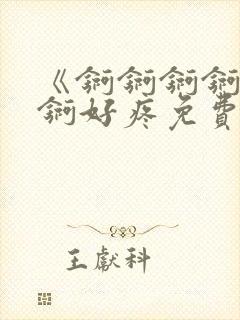 《锕锕锕锕
锕好疼免費
王獻科